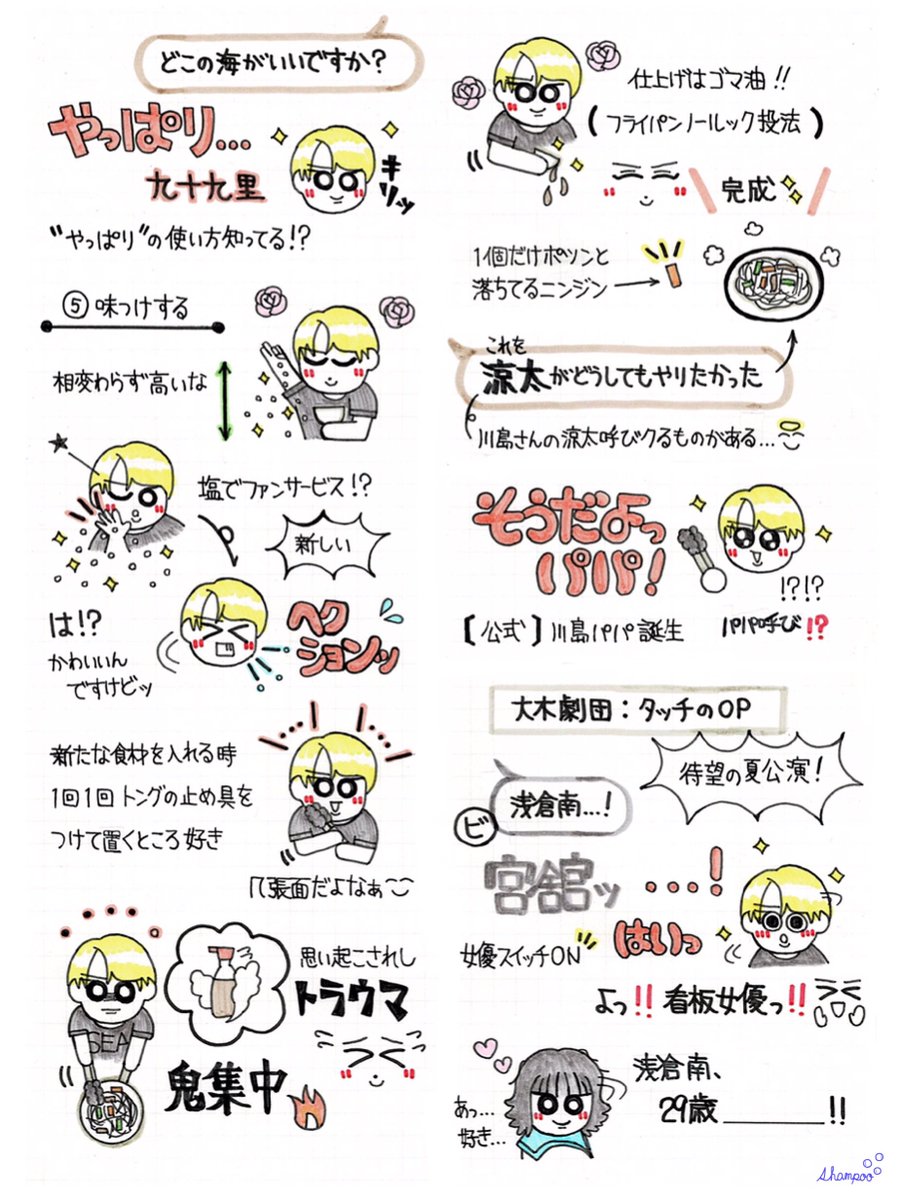 どこの海がいいですか?
やっぱり...
九十九里
キリッ
"やっぱり"の使い方知ってる!?
⑤ 味つけする
相変わらず高いな
塩でファンサービス!?
新しい
は!?
かわいいん
ですけどッ
ヘク
ションッ
新たな食材を入れる時
1回1回トングの止め具を
つけて置くところ好き
几張面だよなぁ
思い起こされし
トラウマ
SEA
鬼集中
仕上げはゴマ油!!
(フライパンノールック投法)
完成
1個だけポツンと
落ちてるニンジン
これを
涼太がどうしてもやりたかった
川島さんの涼太呼びクるものがある...
そうだよっ
パパ!
!?!?
【公式】川島パパ誕生
パパ呼び!?
大木劇団:タッチのOP
待望の夏公演!
浅倉南...!
ビ
宮舘ッ...!
はいっ
女優スイッチON
よっ!!看板女優っ!!
浅倉南、
29歳______!!
あっ...
好き...
Shampoo